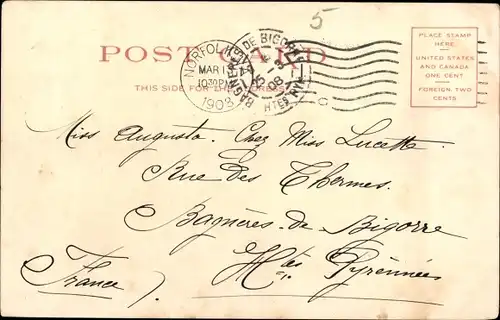 5
POST CARD
THIS SIDE FOR THE ADDRESS
NORFOLK
MAR 1
1030P
1908
BAGNERES DE BIGORRE
08
HTES PYR
PLACE STAMP
HERE.
UNITED STATES
AND CANADA
ONE CENT.
FOREIGN, TWO
CENTS
Miss Augusta. Chez Miss Lucette
Rue des Thermes.
Bagnères-de-Bigorre
Htes Pyrénnées
France).